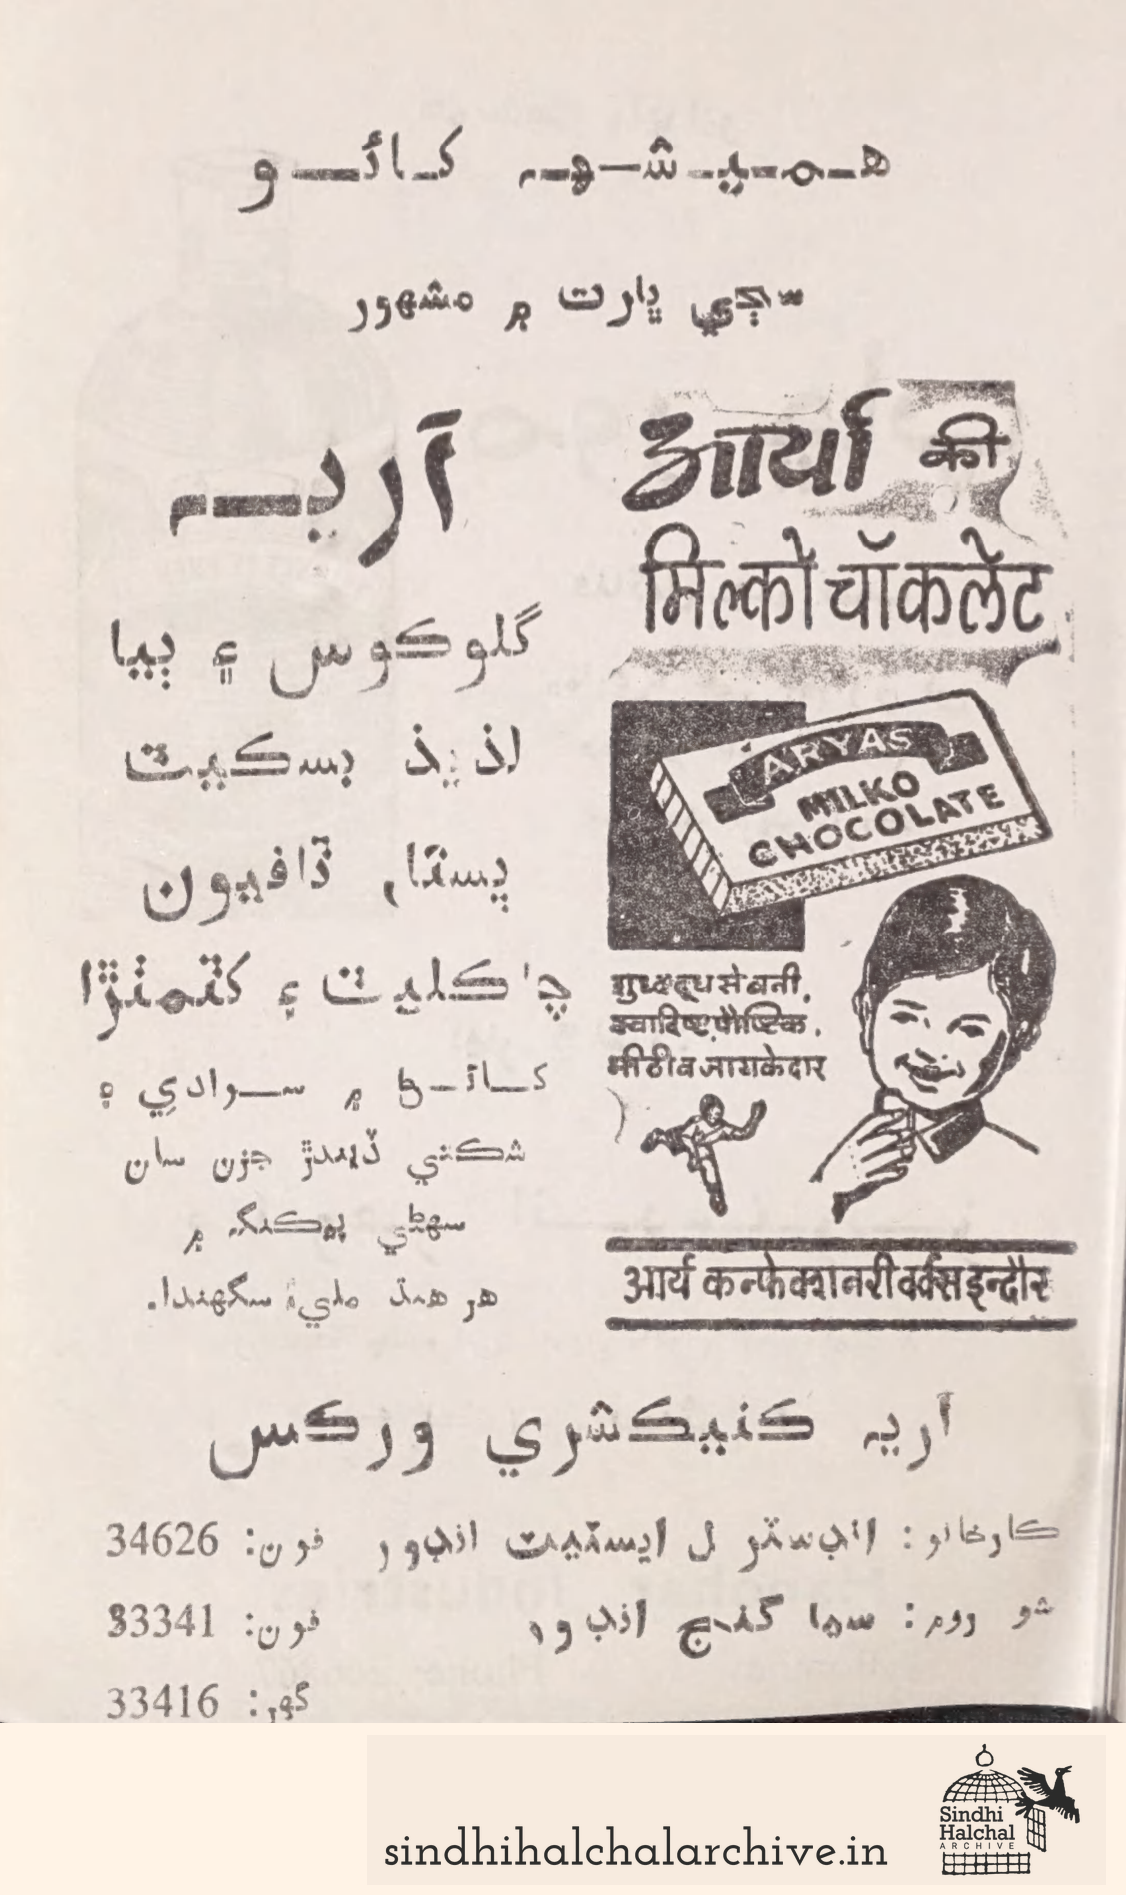 هميشهہ کائو
سڄي ڀارت ۾ مشهور
آريہ
گلوڪوس ۽ ٻيا
لذيذ بسڪيٽ
پستا، ٽافيون
چاڪليٽ ۽ کٽمٺڙا
کائڻ ۾ سوادي ۽
شڪتي ڏيندڙ جزن سان
سهڻي پئڪنگ ۾
هر هنڌ ملي سگهندا.
आर्या की
मिल्को चॉकलेट
ARYAS
MILKO
CHOCOLATE
शुध्द दूध से बनी,
स्वादिष्ट, पौष्टिक,
मीठी व जायकेदार
आर्य कन्फेक्शनरी वर्क्स इन्दौर
آريہ ڪنيڪشري ورڪس
ڪارخانو: انڊسٽرل ايسٽيٽ انڊور فون: 34626
شو روم: سها گنج انڊور فون: 33341
گهر: 33416
sindhihalchalarchive.in
Sindhi
Halchal
ARCHIVE